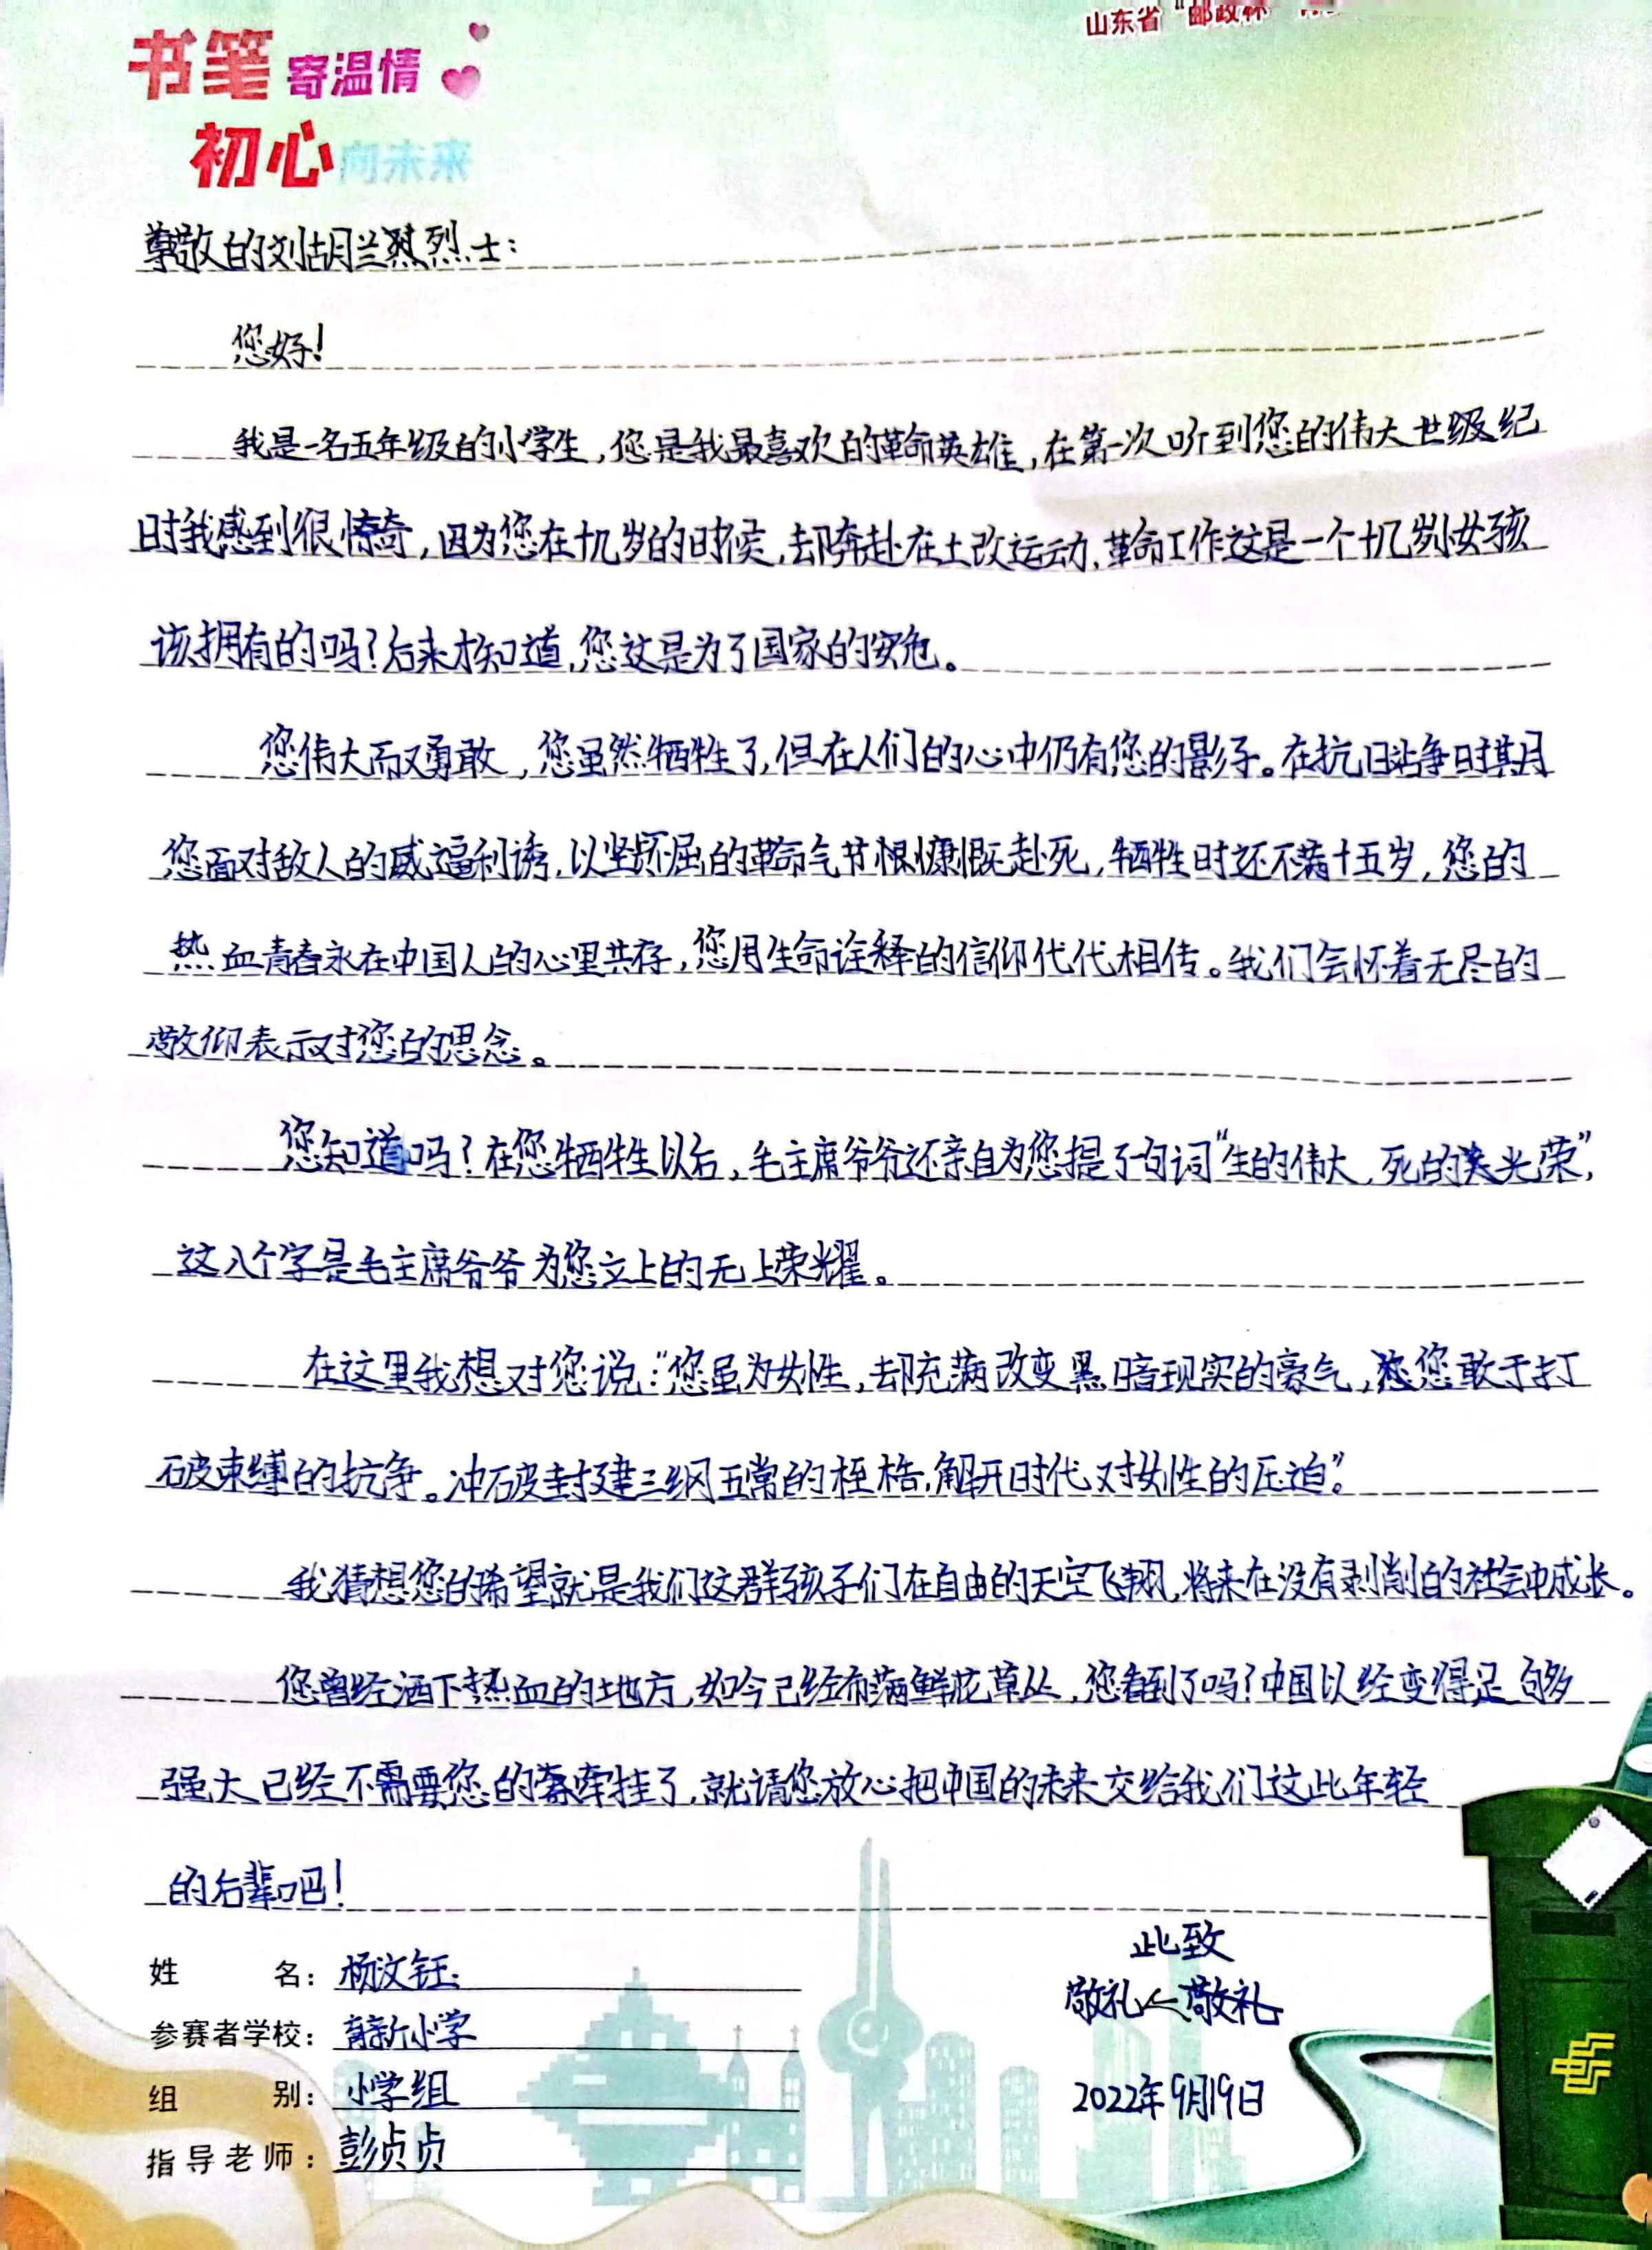 山东省“邮政杯”
书笔寄温情
初心向未来
尊敬的刘胡兰烈士：
您好！
我是一名五年级的小学生，您是我最喜欢的革命英雄，在第一次听到您的伟大世级纪
时我感到很惊奇，因为您在十几岁的时候，却奔赴在土改运动、革命工作这是一个十几岁小女孩
该拥有的吗？后来才知道，您这是为了国家的安危。
您伟大而又勇敢，您虽然牺牲了，但在人们的心中仍有您的影子。在抗日战争时期
您面对敌人的威逼利诱，以坚贞不屈的革命气节慷慨赴死，牺牲时还不满十五岁，您的
热血青春永在中国人的心里共存，您用生命诠释的信仰代代相传。我们会怀着无尽的
敬仰表示对您的思念。
您知道吗？在您牺牲以后，毛主席爷爷还亲自为您提了句词“生的伟大，死的光荣”，
这八个字是毛主席爷爷为您立上的无上荣耀。
在这里我想对您说：“您虽为女性，却充满改变黑暗现实的豪气，您敢于打
破束缚的抗争。冲破封建三纲五常的桎梏，解开时代对女性的压迫”。
我猜想您的希望就是我们这群孩子们在自由的天空飞翔，将来在没有剥削的社会中成长。
您曾经洒下热血的地方，如今已经布满鲜花草丛，您看到了吗？中国以经变得足够
强大已经不需要您的牵挂了，就请您放心把中国的未来交给我们这些年轻
的后辈吧！
此致
敬礼←敬礼
2022年9月19日
姓名：杨汶钰
参赛者学校：育新小学
组别：小学组
指导老师：彭贞贞